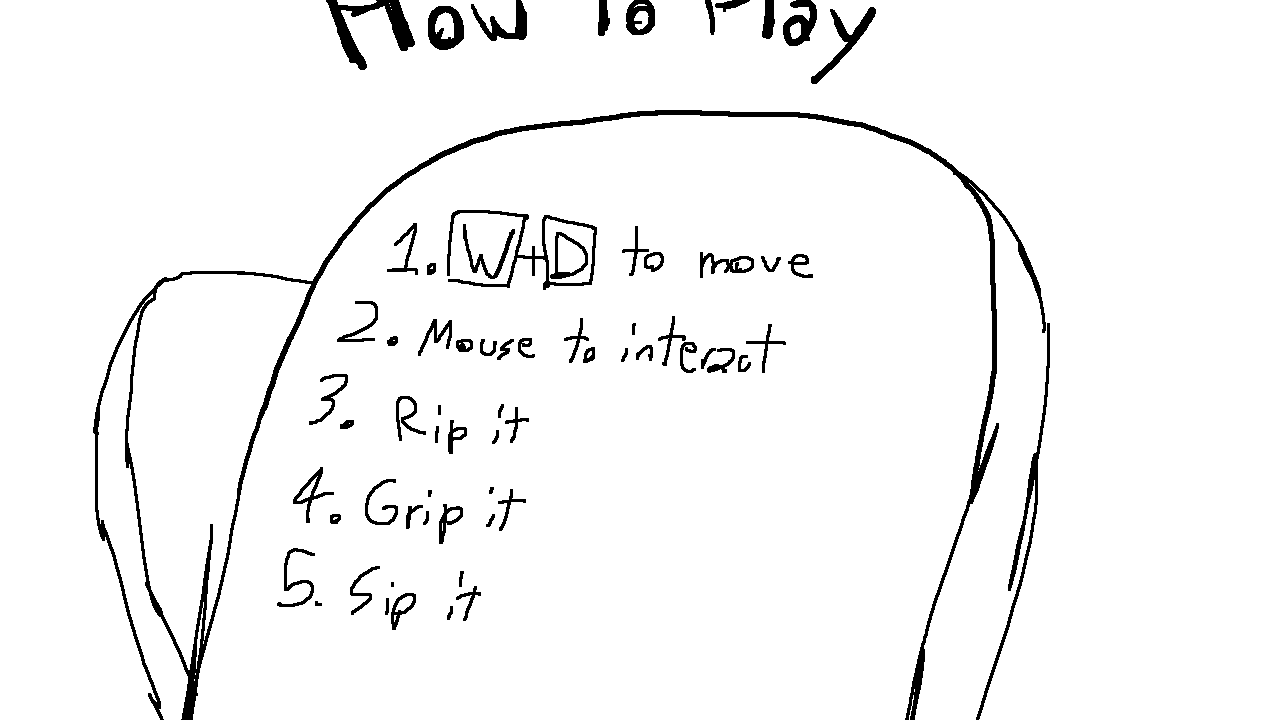 How To Play
1. W+D to move
2. Mouse to interact
3. Rip it
4. Grip it
5. Sip it